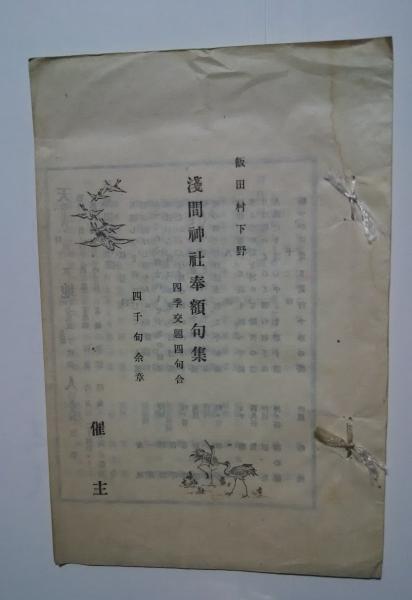 飯田村下野
淺間神社奉額句集
四季交題四句合
四千句余章
催主